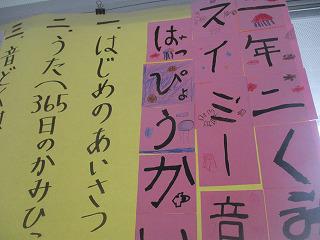 一年二くみ
スイミー音
はっぴょうかい
一、はじめのあいさつ
二、うた〈365日のかみひ
三、音ど